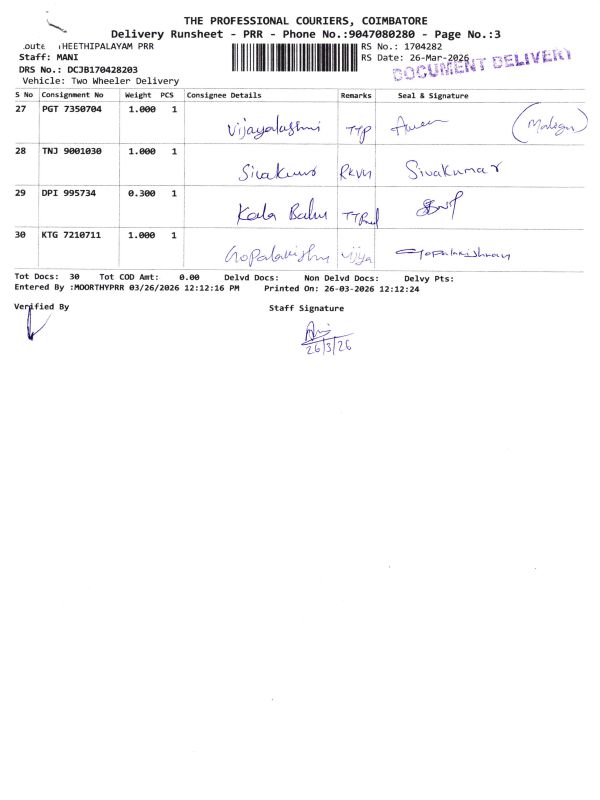 THE PROFESSIONAL COURIERS, COIMBATORE
Delivery Runsheet - PRR - Phone No.:9047080280 - Page No.:3
HEETHIPALAYAM PRR
RS No.: 1704282
Staff: MANI
RS Date: 26-Mar-2026
DOCUMENT DELIVERY
DRS No.: DCJB170428203
Vehicle: Two Wheeler Delivery
S No Consignment No Weight PCS Consignee Details Remarks Seal & Signature
27 PGT 7350704 1.000 1
Vijayalashmi TTP
28 TNJ 9001030 1.000 1
RKVM Sivakumar
29 DPI 995734 0.300 1
Kala Babu
30 KTG 7210711 1.000 1
Vijya Gopalakrishnan
Tot Docs: 30 Tot COD Amt: 0.00 Delvd Docs: Non Delvd Docs: Delvy Pts:
Entered By :MOORTHYPRR 03/26/2026 12:12:16 PM Printed On: 26-03-2026 12:12:24
Verified By Staff Signature
26/3/26